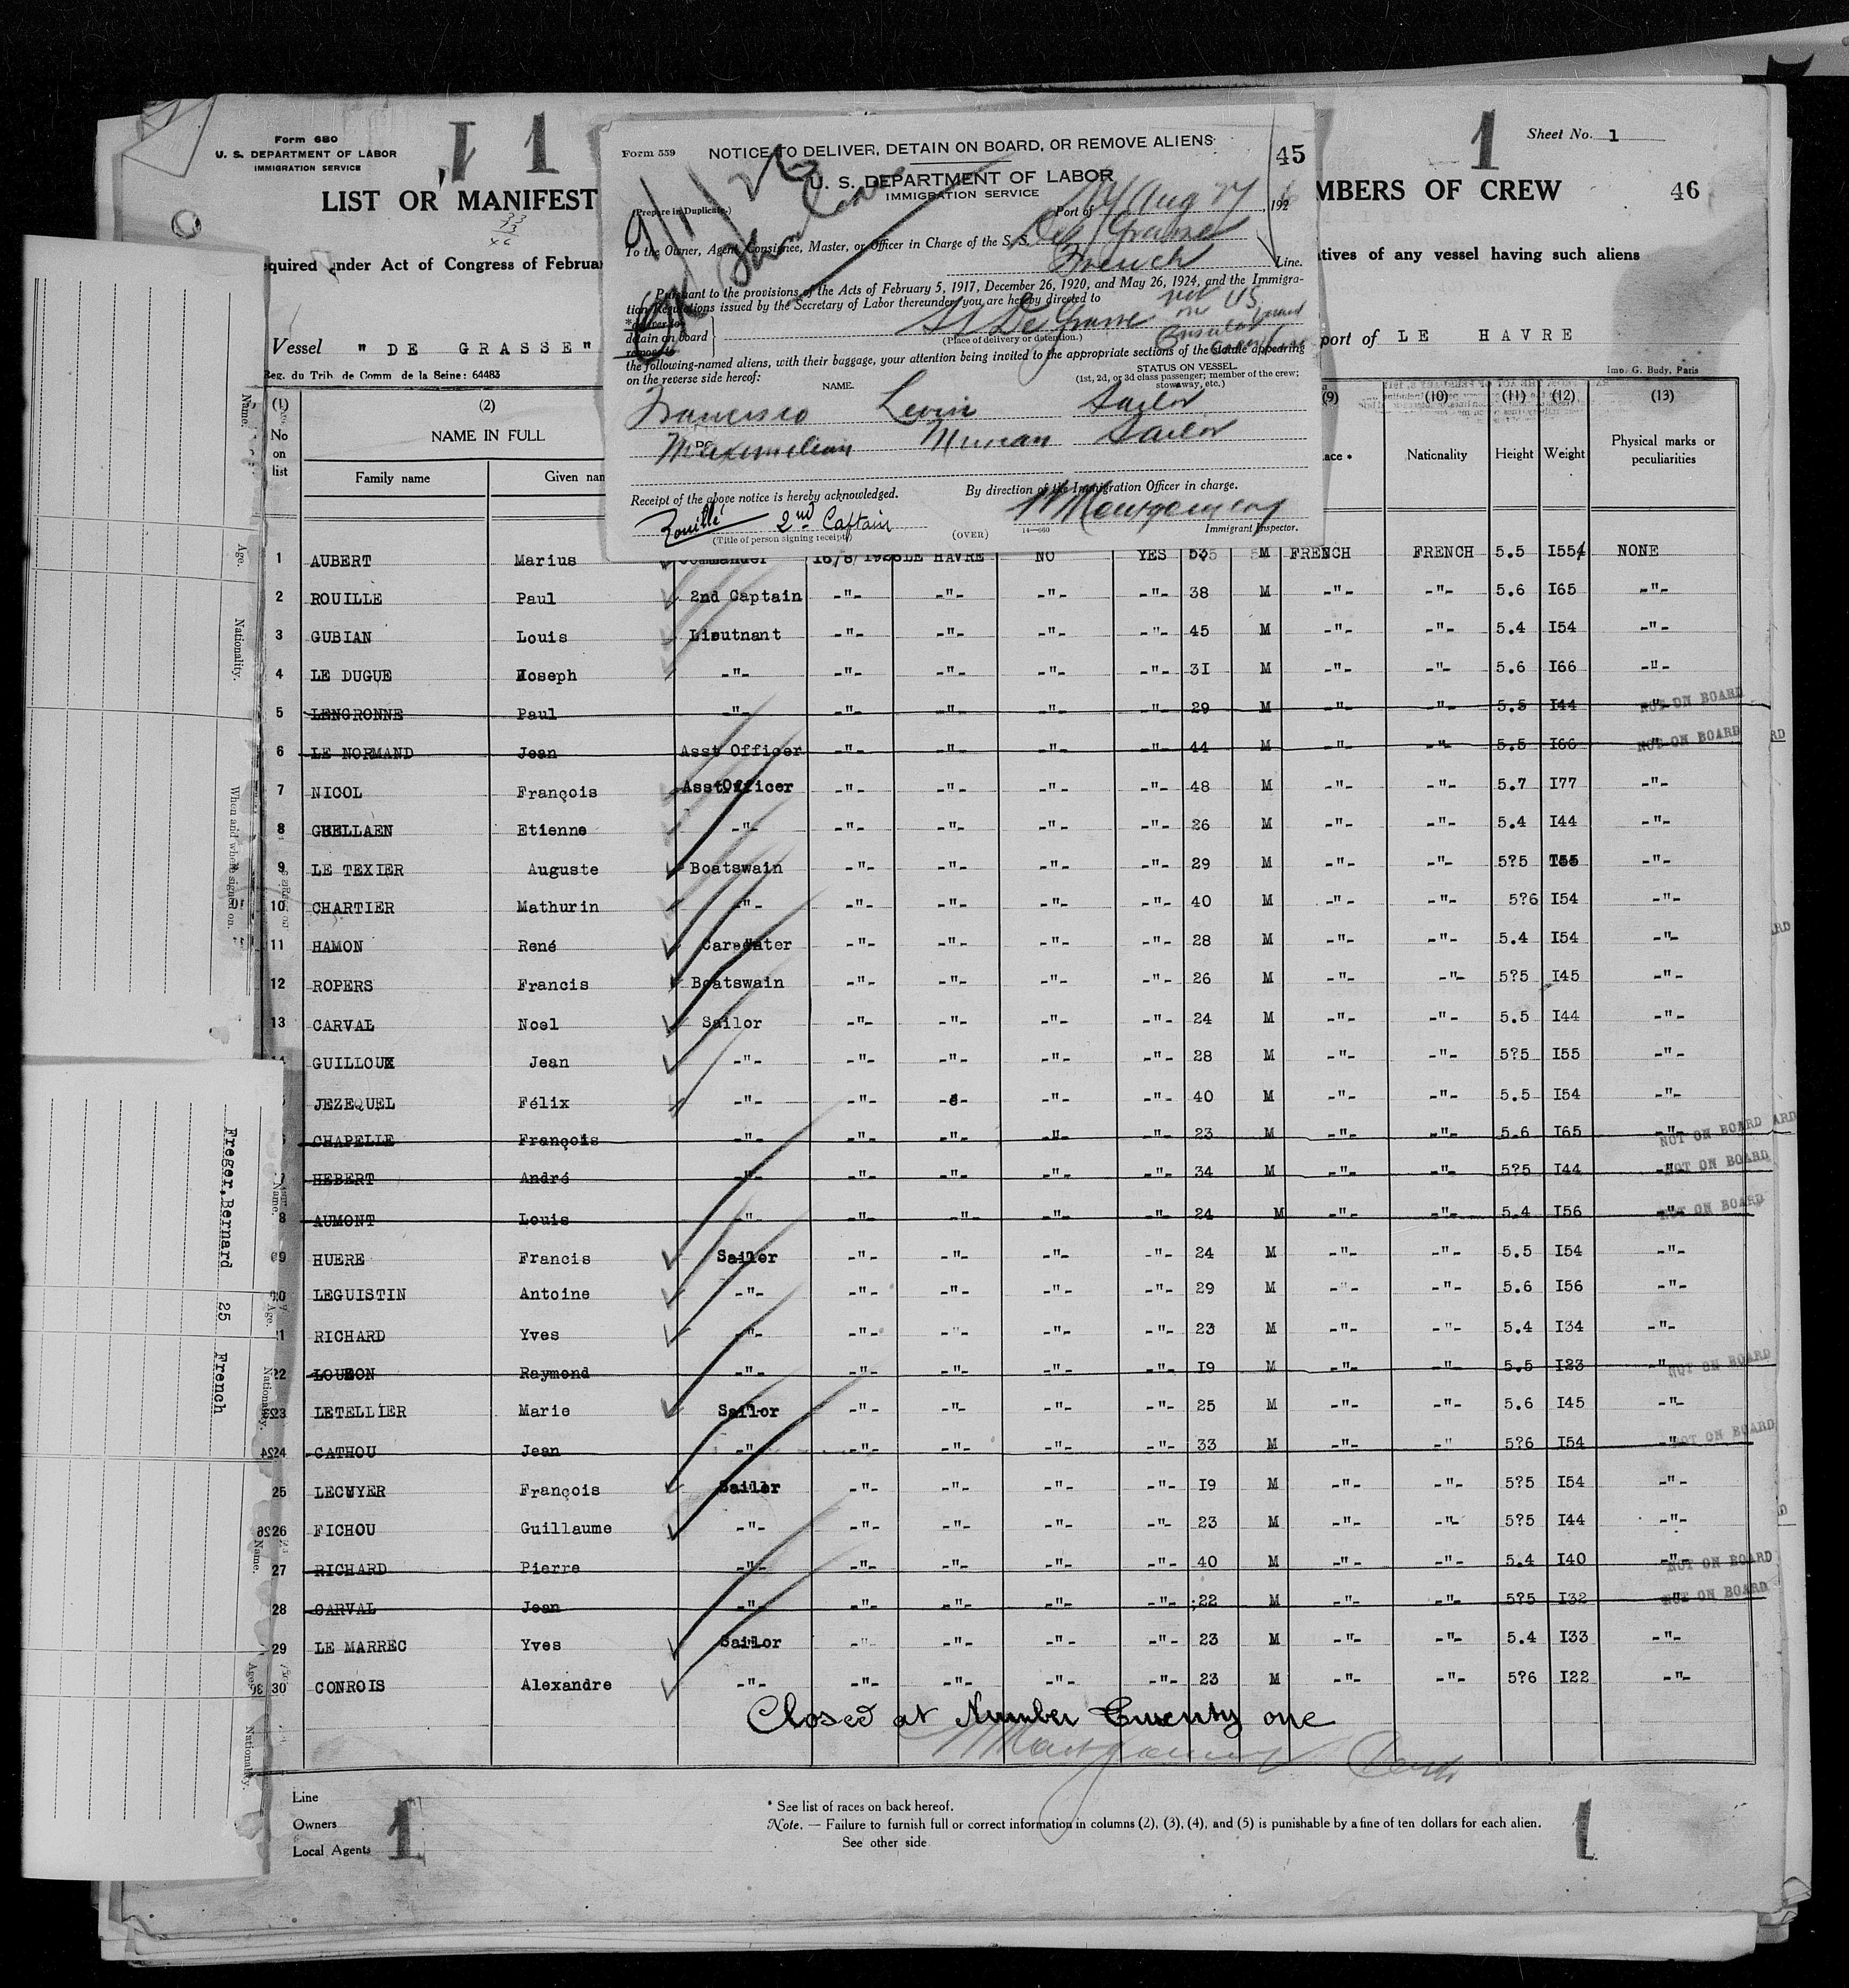 Form 680
U. S. DEPARTMENT OF LABOR
IMMIGRATION SERVICE
1 1
1
Sheet No. 1
LIST OR MANIFEST
MBERS OF CREW
46
33
13
46
equired under Act of Congress of Februar
atives of any vessel having such aliens
Vessel " DE GRASSE"
port of LE HAVRE
Reg. du Trib. de Comm de la Seine: 64483
Imp. G. Budy, Paris
Form 559
NOTICE TO DELIVER, DETAIN ON BOARD, OR REMOVE ALIENS
45
U. S. DEPARTMENT OF LABOR
IMMIGRATION SERVICE
(Prepare in Duplicate.)
Port of NY Aug 27, 1926
To the Owner, Agent, Consignee, Master, or Officer in Charge of the S. S. De Grasse
French Line.
Pursuant to the provisions of the Acts of February 5, 1917, December 26, 1920, and May 26, 1924, and the Immigra-
tion Regulations issued by the Secretary of Labor thereunder, you are hereby directed to
*deliver to
detain on board
remove to
SS De Grasse
(Place of delivery or detention.)
the following-named aliens, with their baggage, your attention being invited to the appropriate sections of the statute appearing
on the reverse side hereof:
NAME.
STATUS ON VESSEL.
(1st, 2d, or 3d class passenger; member of the crew;
stowaway, etc.)
Francisco Levin Sailor
Maximilian Sailor
Receipt of the above notice is hereby acknowledged.
By direction of the Immigration Officer in charge.
Rouillé 2nd Captain
Montgomery
(Title of person signing receipt)
(OVER)
14—660
Immigrant Inspector.
(1) (2) (9) (10) (11) (12) (13)
No
on
list
NAME IN FULL
Family name
Given nam
ace *
Nationality
Height
Weight
Physical marks or
peculiarities
1 AUBERT Marius Commander 18/8/1926 LE HAVRE NO YES 53 M FRENCH FRENCH 5.5 I554 NONE
2 ROUILLE Paul 2nd Captain -"- -"- -"- -"- 38 M -"- -"- 5.6 I65 -"-
3 GUBIAN Louis Lieutnant -"- -"- -"- -"- 45 M -"- -"- 5.4 I54 -"-
4 LE DUGUE Joseph -"- -"- -"- -"- -"- 3I M -"- -"- 5.6 I66 -"-
5 LENGRONNE Paul -"- -"- -"- -"- -"- 29 M -"- -"- 5.5 I44 -"- NOT ON BOARD
6 LE NORMAND Jean Asst Officer -"- -"- -"- -"- 44 M -"- -"- 5.5 I66 -"- NOT ON BOARD
7 NICOL François AsstOfficer -"- -"- -"- -"- 48 M -"- -"- 5.7 I77 -"-
8 GHELLAEN Etienne -"- -"- -"- -"- -"- 26 M -"- -"- 5.4 I44 -"-
9 LE TEXIER Auguste Boatswain -"- -"- -"- -"- 29 M -"- -"- 5?5 I55 -"-
10 CHARTIER Mathurin -"- -"- -"- -"- -"- 40 M -"- -"- 5?6 I54 -"-
11 HAMON René Carpenter -"- -"- -"- -"- 28 M -"- -"- 5.4 I54 -"-
12 ROPERS Francis Boatswain -"- -"- -"- -"- 26 M -"- -"- 5?5 I45 -"-
13 CARVAL Noel Sailor -"- -"- -"- -"- 24 M -"- -"- 5.5 I44 -"-
GUILLOUX Jean -"- -"- -"- -"- -"- 28 M -"- -"- 5?5 I55 -"-
JEZEQUEL Félix -"- -"- -"- -"- -"- 40 M -"- -"- 5.5 I54 -"-
CHAPELLE François -"- -"- -"- -"- -"- 23 M -"- -"- 5.6 I65 -"- NOT ON BOARD
7 HEBERT André -"- -"- -"- -"- -"- 34 M -"- -"- 5?5 I44 -"- NOT ON BOARD
8 AUMONT Louis -"- -"- -"- -"- -"- 24 M -"- -"- 5.4 I56 -"- NOT ON BOARD
9 HUERE Francis Sailor -"- -"- -"- -"- 24 M -"- -"- 5.5 I54 -"-
0 LEGUISTIN Antoine -"- -"- -"- -"- -"- 29 M -"- -"- 5.6 I56 -"-
1 RICHARD Yves -"- -"- -"- -"- -"- 23 M -"- -"- 5.4 I34 -"-
22 LOUZON Raymond -"- -"- -"- -"- -"- I9 M -"- -"- 5.5 I23 -"- NOT ON BOARD
23 LETELLIER Marie Sailor -"- -"- -"- -"- 25 M -"- -"- 5.6 I45 -"-
24 CATHOU Jean -"- -"- -"- -"- -"- 33 M -"- -" 5?6 I54 -"- NOT ON BOARD
25 LECUYER François Sailor -"- -"- -"- -"- I9 M -"- -"- 5?5 I54 -"-
26 FICHOU Guillaume -"- -"- -"- -"- -"- 23 M -"- -"- 5?5 I44 -"-
27 RICHARD Pierre -"- -"- -"- -"- -"- 40 M -"- -"- 5.4 I40 -"- NOT ON BOARD
28 CARVAL Jean -"- -"- -"- -"- -"- 22 M -"- -"- 5?5 I32 -"- NOT ON BOARD
29 LE MARREC Yves Sailor -"- -"- -"- -"- 23 M -"- -"- 5.4 I33 -"-
30 CONROIS Alexandre -"- -"- -"- -"- -"- 23 M -"- -"- 5?6 I22 -"-
Closed at Number Twenty one
Montgomery
Line
Owners
Local Agents
1
1
* See list of races on back hereof.
Note. — Failure to furnish full or correct information in columns (2), (3), (4), and (5) is punishable by a fine of ten dollars for each alien.
See other side
Name.
Age.
Nationality.
When and where signed on.
Freger,Bernard 25 French
Name.
Age.
Nationality.
Name.
Age.
Nationality.